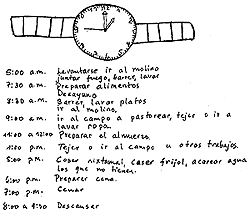 5:00 a.m. Levantarse ir al molino
juntar fuego, barrer, lavar
7:30 a.m. Preparar alimentos
Desayuno
8:30 a.m. Barrer, lavar platos
ir al molino,
9:00 a.m. ir al campo a pastorear, tejer o ir a
lavar ropa.
11:00 a 12:00 Preparar el almuerzo.
1:00 p.m. Tejer o ir al campo u otros trabajos.
5:00 p.m. Coser nixtamal, coser frijol, acarrear agua
los que no tienen.
6:00 p.m. Preparar cena.
7:00 p.m. Cenar
8:00 a 9:30 Descansar